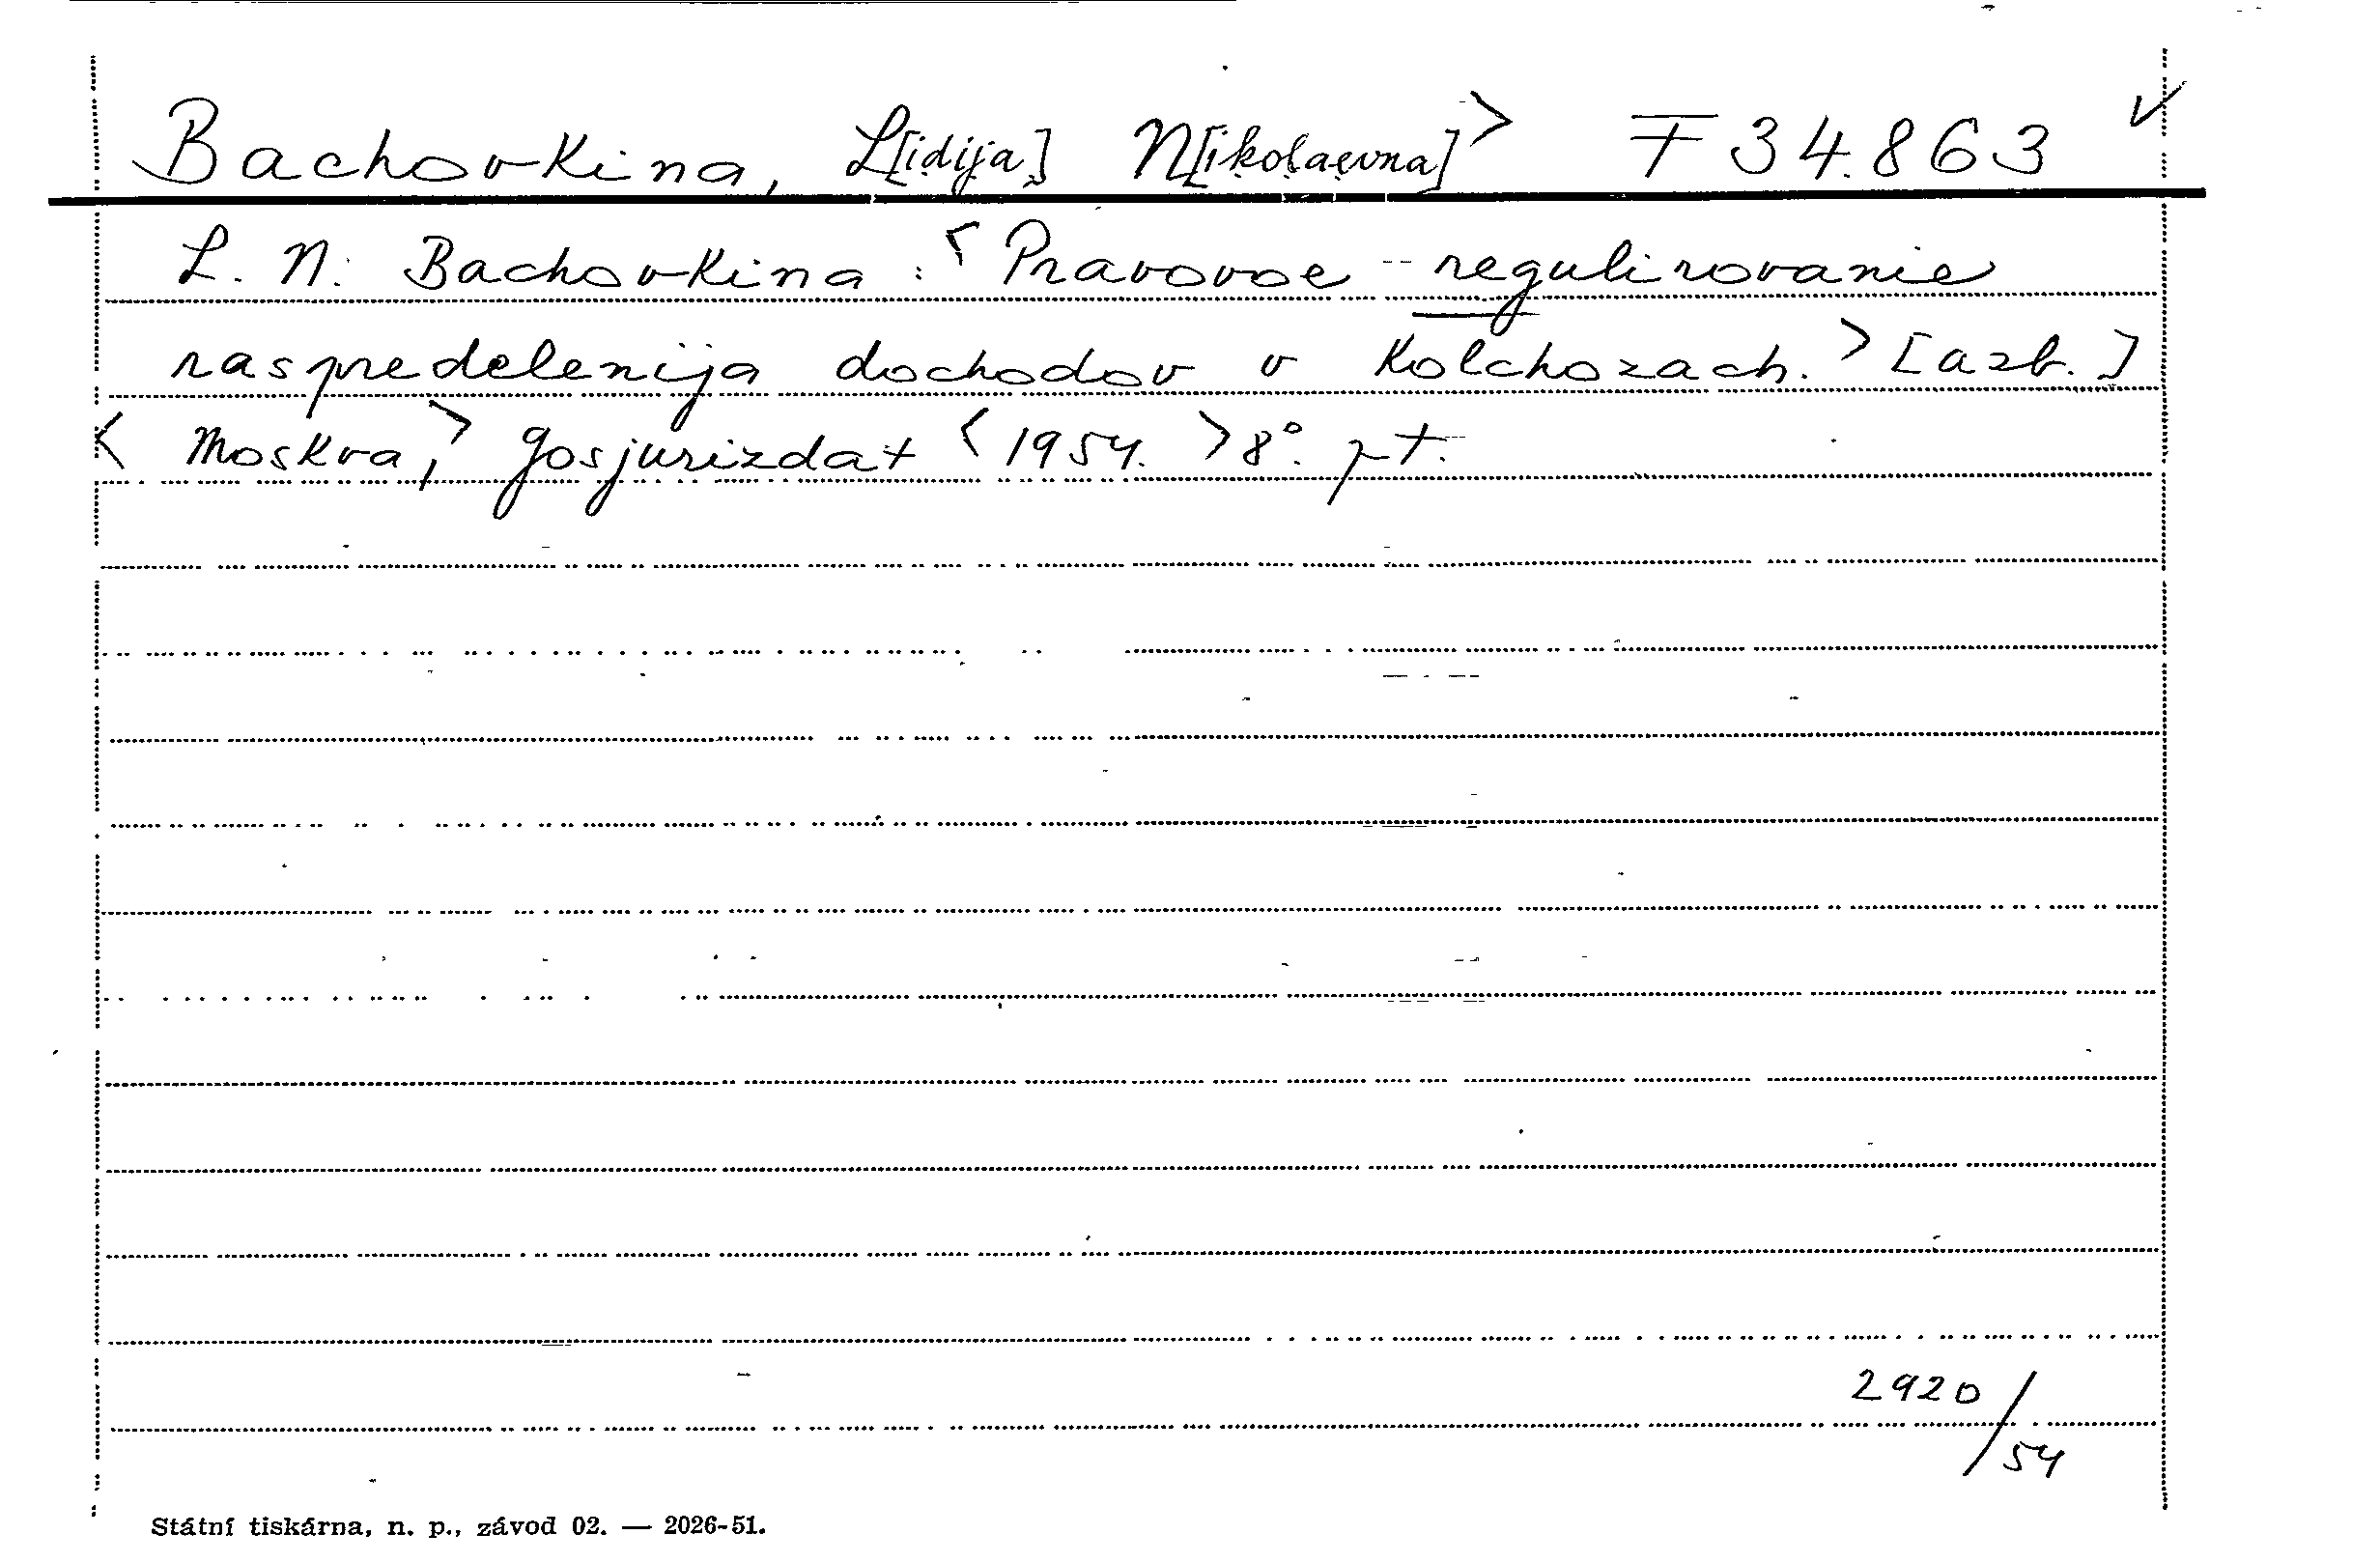 Bachovkina, L[idija] N[ikolaevna]> F 34.863
L. N. Bachovkina: <Pravovoe regulirovanie
raspredelenija dochodov v kolchozach.> [azb.]
<Moskva,> Gosjurizdat <1954.> 8°. pt.
2920/54
Státní tiskárna, n. p., závod 02. — 2026-51.